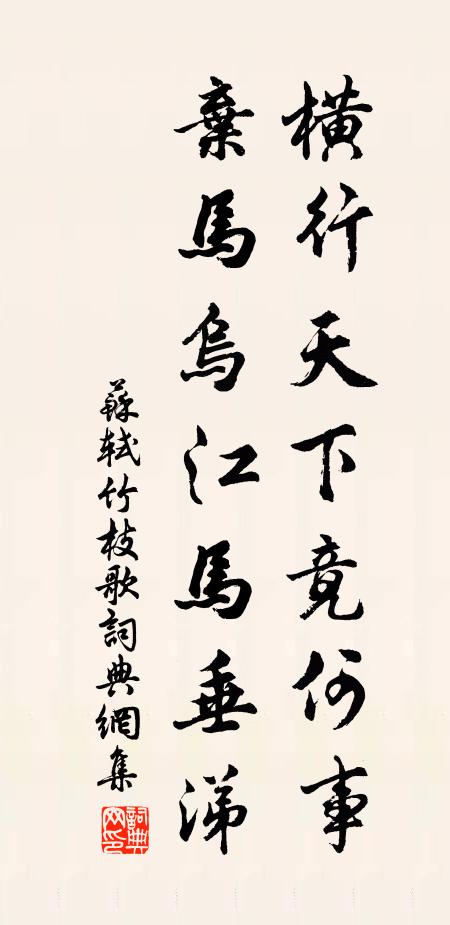 橫行天下竟何事
棄馬烏江馬垂涕
蘇軾竹枝歌詞典網集
詞典網印